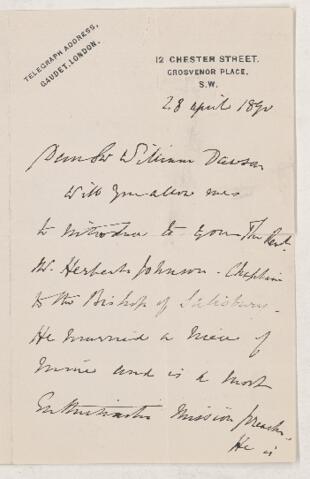 TELEGRAPH ADDRESS,
GAUDET, LONDON.
12 CHESTER STREET.
GROSVENOR PLACE,
S.W.
28 April 1890
Dear Sir William Dawson
Will you allow me
to introduce to you The Revd.
W. Herbert Johnson - Chaplain
to the Bishop of Salisbury.
He married a niece of
mine and is a most
Enthusiastic Mission preacher.
He is